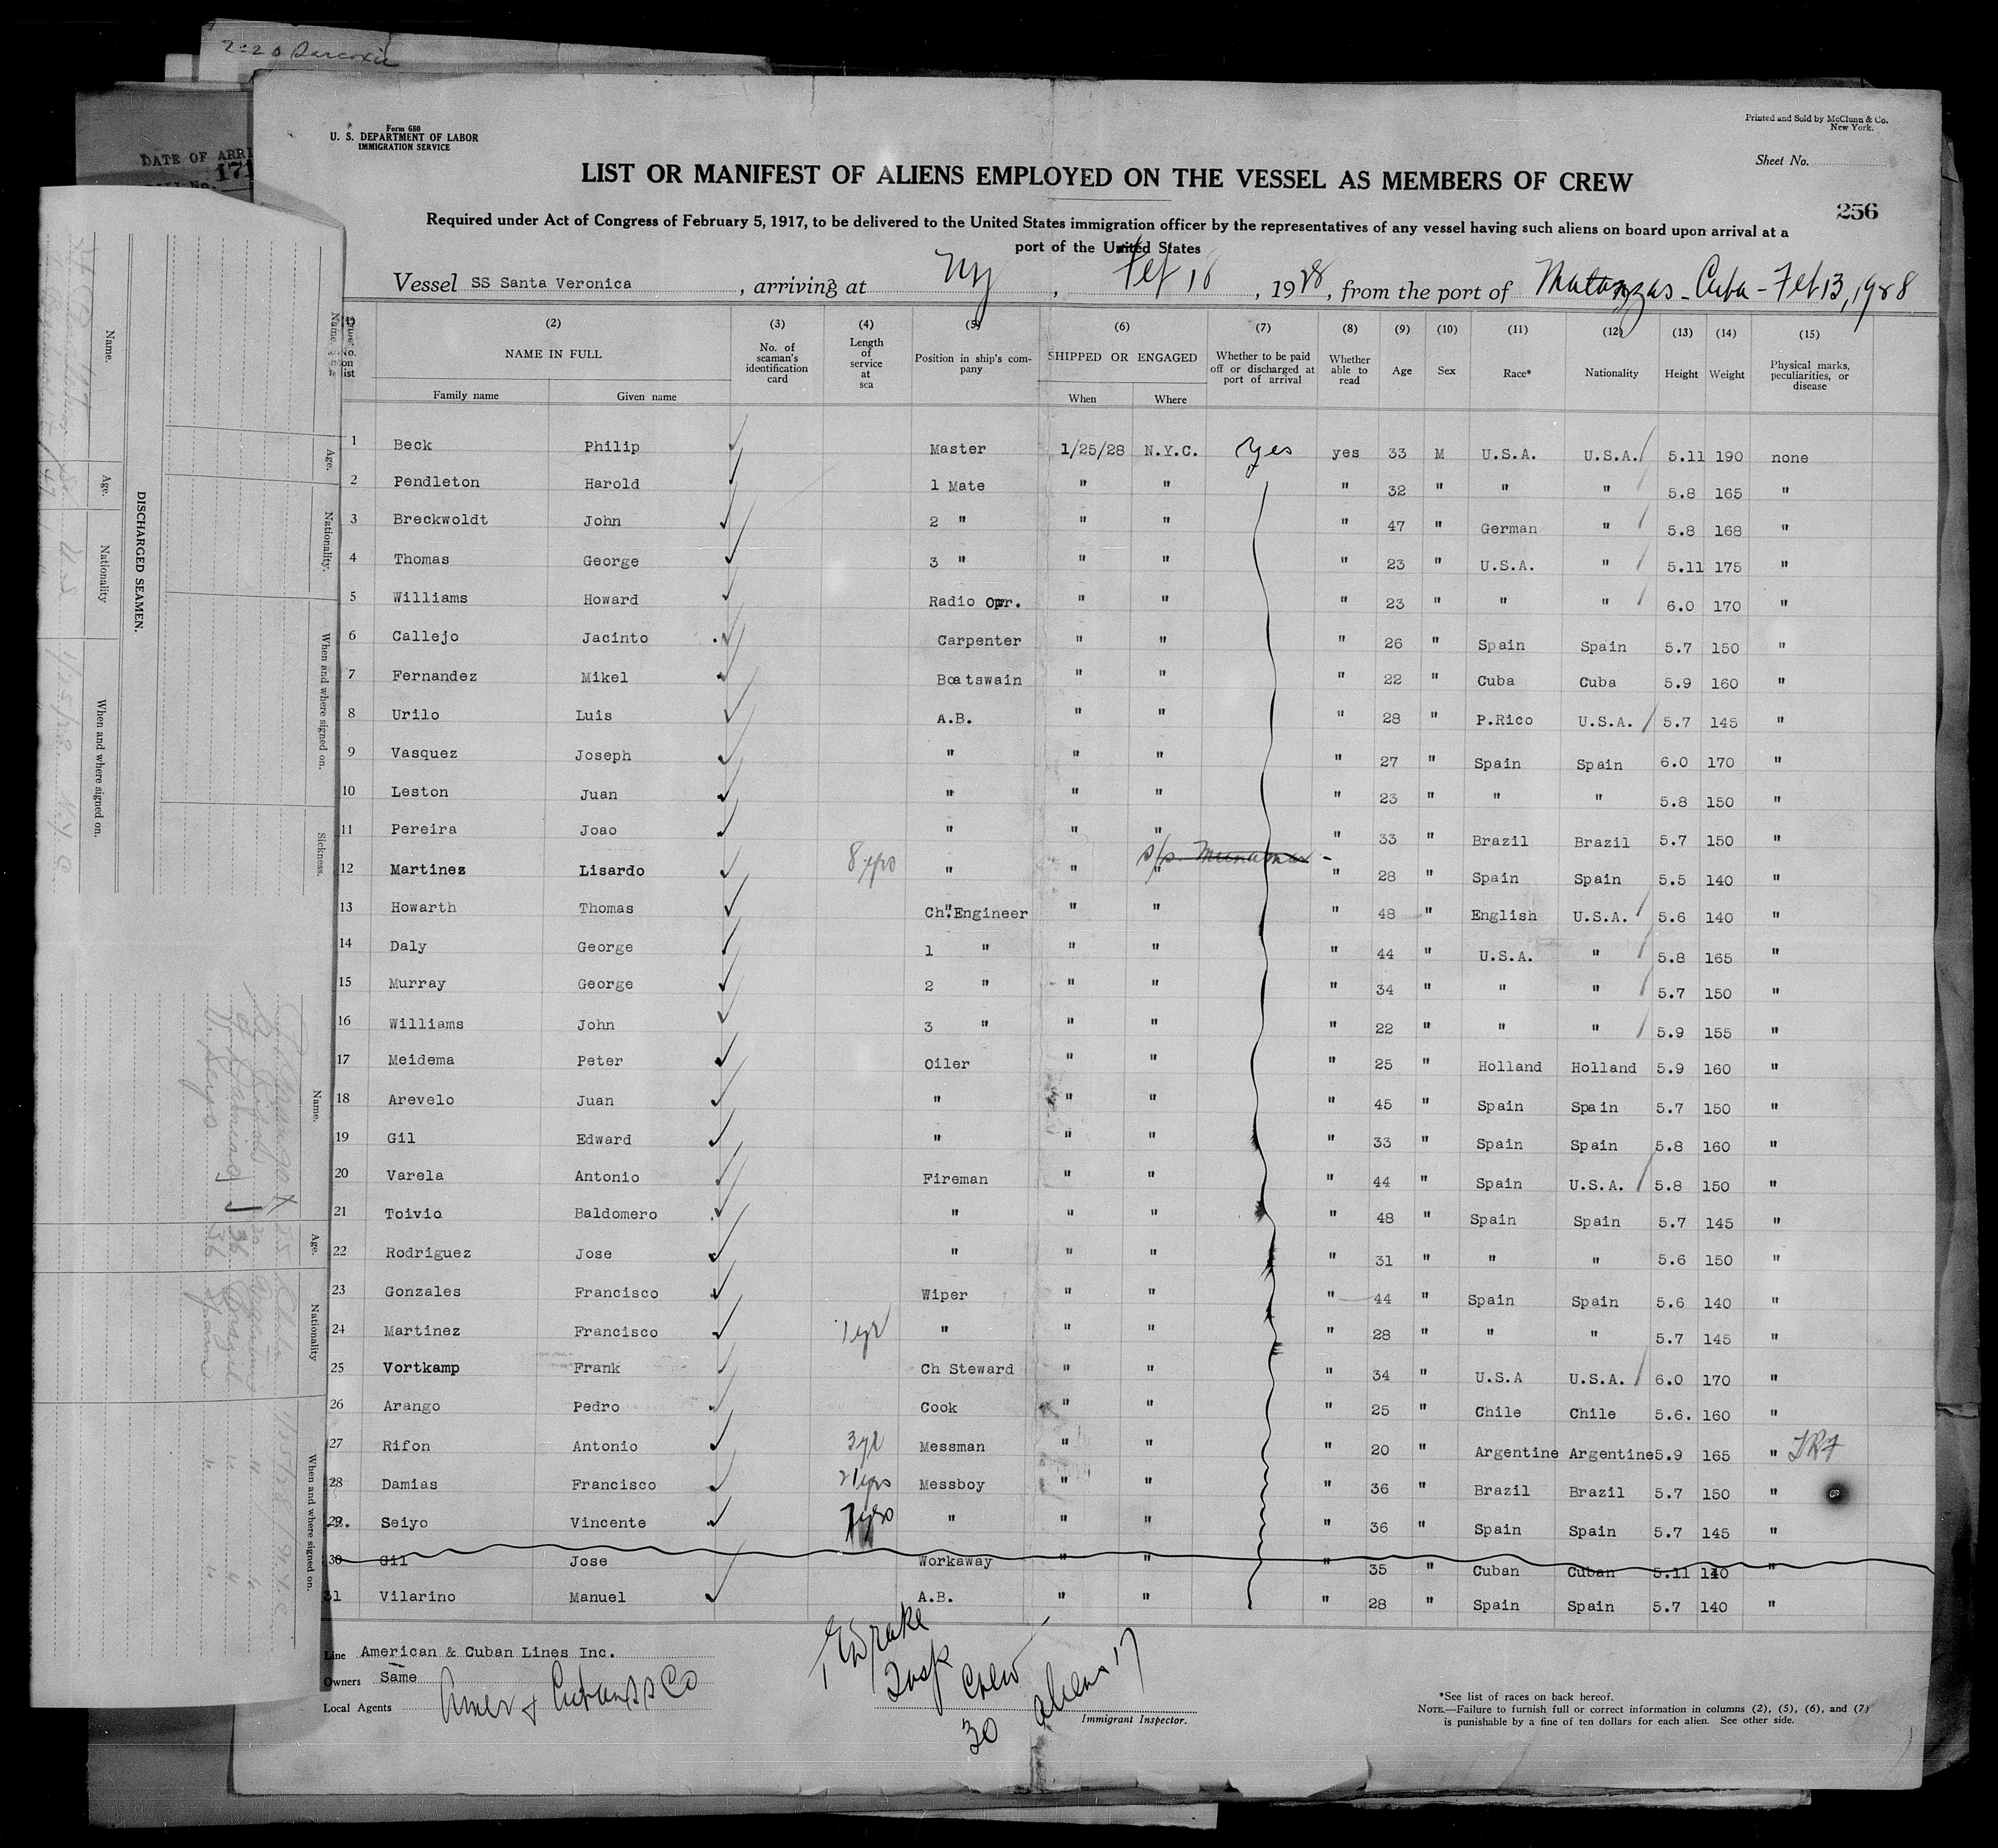 2-20 Sarcoxie
DATE OF ARRI
171
Form 680
U. S. DEPARTMENT OF LABOR
IMMIGRATION SERVICE
Printed and Sold by McClunn & Co.
New York.
Sheet No.
LIST OR MANIFEST OF ALIENS EMPLOYED ON THE VESSEL AS MEMBERS OF CREW
256
Required under Act of Congress of February 5, 1917, to be delivered to the United States immigration officer by the representatives of any vessel having such aliens on board upon arrival at a
port of the United States
Vessel SS Santa Veronica, arriving at NY, Feb 18, 1928, from the port of Matanzas - Cuba - Feb 13, 1928
(1) (2) (3) (4) (5) (6) (7) (8) (9) (10) (11) (12) (13) (14) (15)
No. on list NAME IN FULL Family name Given name No. of seaman's identification card Length of service at sea Position in ship's company SHIPPED OR ENGAGED When Where Whether to be paid off or discharged at port of arrival Whether able to read Age Sex Race* Nationality Height Weight Physical marks, peculiarities, or disease
1 Beck Philip Master 1/25/28 N.Y.C. Yes yes 33 M U.S.A. U.S.A. 5.11 190 none
2 Pendleton Harold 1 Mate " " " 32 " " " 5.8 165 "
3 Breckwoldt John 2 " " " " 47 " German " 5.8 168 "
4 Thomas George 3 " " " " 23 " U.S.A. " 5.11 175 "
5 Williams Howard Radio Opr. " " " 23 " " " 6.0 170 "
6 Callejo Jacinto Carpenter " " " 26 " Spain Spain 5.7 150 "
7 Fernandez Mikel Boatswain " " " 22 " Cuba Cuba 5.9 160 "
8 Urilo Luis A.B. " " " 28 " P.Rico U.S.A. 5.7 145 "
9 Vasquez Joseph " " " " 27 " Spain Spain 6.0 170 "
10 Leston Juan " " " " 23 " " " 5.8 150 "
11 Pereira Joao " " " " 33 " Brazil Brazil 5.7 150 "
s/s. Munamar -
12 Martinez Lisardo 8 yrs " " " " 28 " Spain Spain 5.5 140 "
13 Howarth Thomas Ch. Engineer " " " 48 " English U.S.A. 5.6 140 "
14 Daly George 1 " " " " 44 " U.S.A. " 5.8 165 "
15 Murray George 2 " " " " 34 " " " 5.7 150 "
16 Williams John 3 " " " " 22 " " " 5.9 155 "
17 Meidema Peter Oiler " " " 25 " Holland Holland 5.9 160 "
18 Arevelo Juan " " " " 45 " Spain Spain 5.7 150 "
19 Gil Edward " " " " 33 " Spain Spain 5.8 160 "
20 Varela Antonio Fireman " " " 44 " Spain U.S.A. 5.8 150 "
21 Toivio Baldomero " " " " 48 " Spain Spain 5.7 145 "
22 Rodriguez Jose " " " " 31 " " " 5.6 150 "
23 Gonzales Francisco Wiper " " " 44 " Spain Spain 5.6 140 "
24 Martinez Francisco 1 yr " " " " 28 " " " 5.7 145 "
25 Vortkamp Frank Ch Steward " " " 34 " U.S.A U.S.A. 6.0 170 "
26 Arango Pedro Cook " " " 25 " Chile Chile 5.6. 160 "
27 Rifon Antonio 3 yr Messman " " " 20 " Argentine Argentine 5.9 165 "
28 Damias Francisco 21 yrs Messboy " " " 36 " Brazil Brazil 5.7 150 "
29. Seiyo Vincente 7 yrs " " " " 36 " Spain Spain 5.7 145 "
30 Gil Jose Workaway " " " 35 " Cuban Cuban 5.11 140 "
31 Vilarino Manuel A.B. " " " 28 " Spain Spain 5.7 140 "
Line American & Cuban Lines Inc.
Owners Same
Local Agents Amer & Cuban SS Co
Drake
Insp
Crew 30
aliens 17
Immigrant Inspector.
*See list of races on back hereof.
NOTE.—Failure to furnish full or correct information in columns (2), (5), (6), and (7)
is punishable by a fine of ten dollars for each alien. See other side.
DISCHARGED SEAMEN.
Name. Age. Nationality When and where signed on.
Name. Age. Nationality. When and where signed on. Sickness.
Name. Age. Nationality When and where signed on.